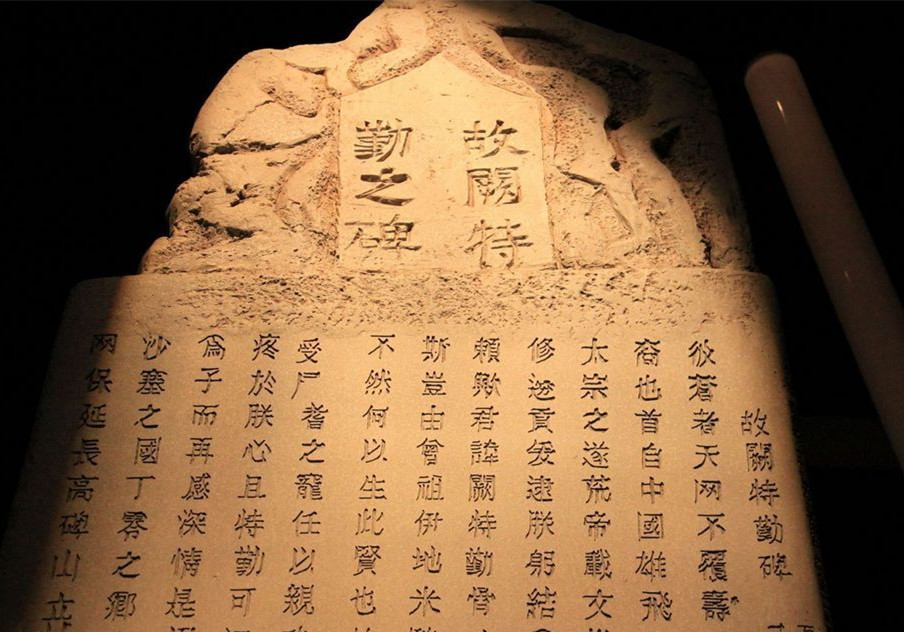 故闕特
勤之碑
故闕特勤碑
彼蒼者天网不覆燾
裔也首自中國雄飛
太宗之遂荒帝載文
修邊貢爰逮朕躬結
賴歟君諱闕特勤骨
斯豈由曾祖伊地米
不然何以生此賢也
受尸耆之寵任以親
疼於朕心且特勤可
爲子而再感深情是
沙塞之國丁零之鄉
网保延長高碑山立